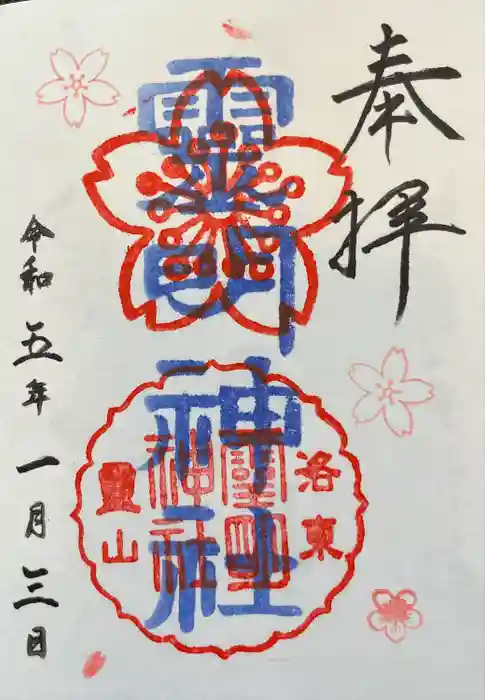 奉拝
靈明神社
洛東
靈明神社
靈山
令和五年一月三日